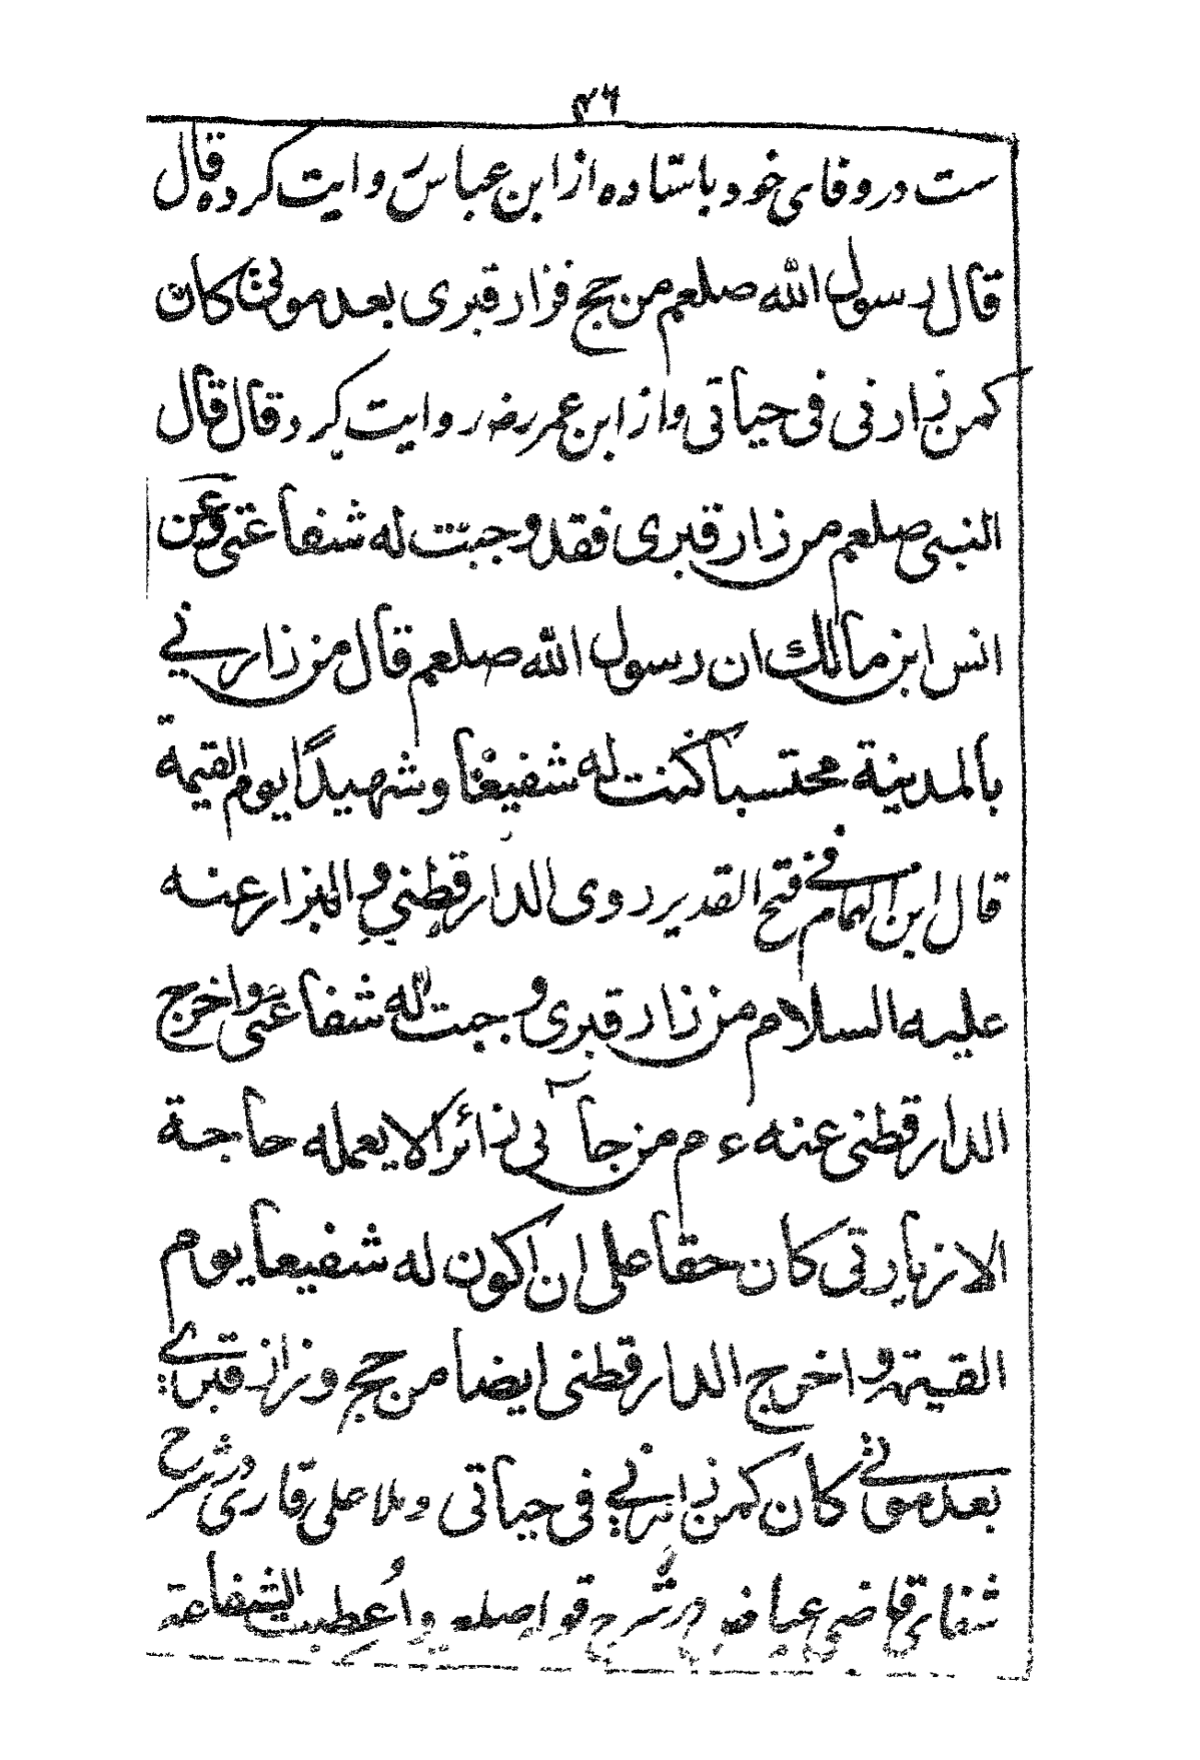 ۳۶
ست در وفای خود باستاده از ابن عباس روایت کرده قال
قال رسول الله صلعم من حج فزار قبری بعد موتی کان
کمن زارنی فی حیاتی و از ابن عمر رضه روایت کرد قال قال
النبی صلعم من زار قبری فقد وجبت له شفاعتی و عن
انس ابن مالک ان رسول الله صلعم قال من زارنی
بالمدینة محتسبا کنت له شفیعا و شهیدًا یوم القیمة
قال ابن الهمام فی فتح القدیر روی الدارقطنی و البزار عنه
علیه السلام من زار قبری وجبت له شفاعتی و اخرج
الدارقطنی عنه ء م من جآنی زائرا لا یعمله حاجة
الا زیارتی کان حقا علی ان اکون له شفیعا یوم
القیمة و اخرج الدارقطنی ایضا من حج و زار قبری
بعد موتی کان کمن زارنی فی حیاتی و ملا علی قاری در شرح
شفای قاضی عیاض در شرح قوله صلعم و اُعطیت الشفاعة